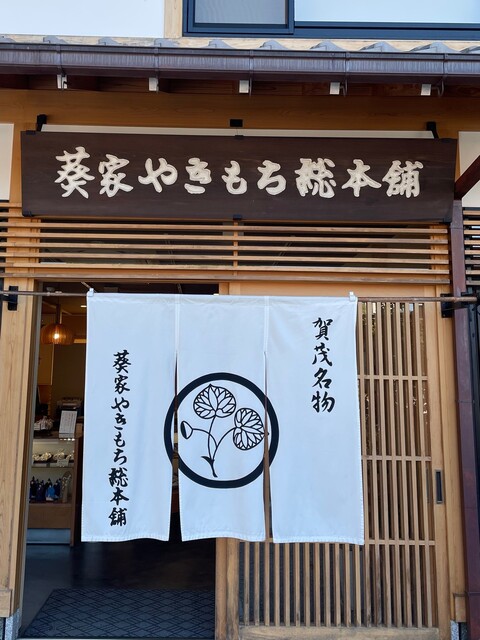 葵家やきもち総本舗
賀茂名物
葵家やきもち総本舗